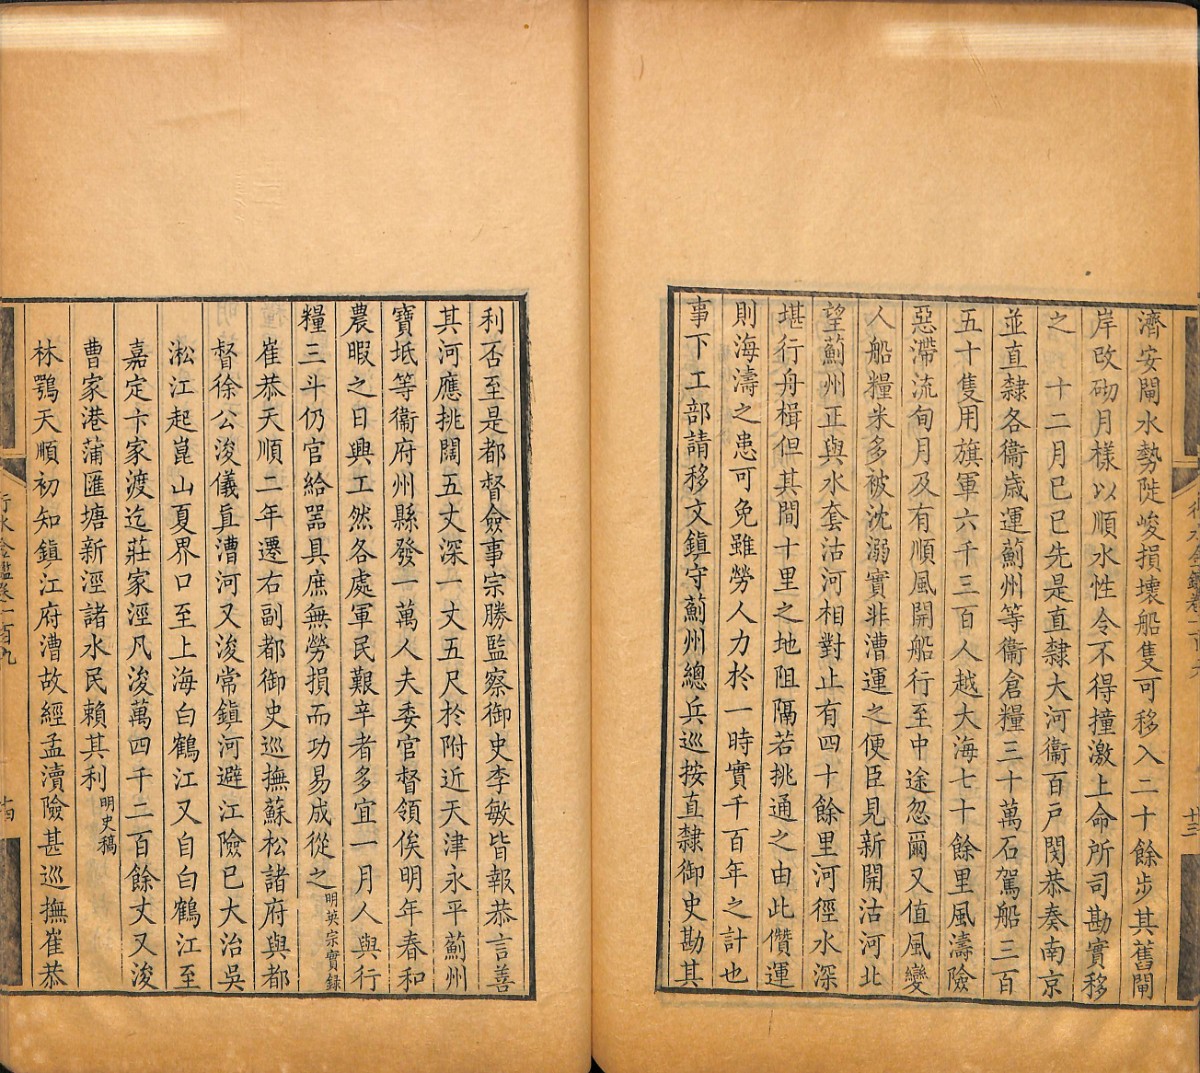 濟安閘水勢陡峻損壞船隻可移入二十餘步其舊閘
岸改砌月樣以順水性令不得撞激上命所司勘實移
之　十二月己巳先是直隸大河衞百戸閔恭奏南京
並直隸各衞歲運薊州等衞倉糧三十萬石駕船三百
五十隻用旗軍六千三百人越大海七十餘里風濤險
惡滯流旬月及有順風開船行至中途忽爾又值風變
人船糧米多被沈溺實非漕運之便臣見新開沽河北
望薊州正與水套沽河相對止有四十餘里河徑水深
堪行舟楫但其間十里之地阻隔若挑通之由此儹運
則海濤之患可免雖勞人力於一時實千百年之計也
事下工部請移文鎮守薊州總兵巡按直隸御史勘其
利否至是都督僉事宗勝監察御史李敏皆報恭言善
其河應挑闊五丈深一丈五尺於附近天津永平薊州
寶坻等衞府州縣發一萬人夫委官督領俟明年春和
農暇之日興工然各處軍民艱辛者多宜一月人與行
糧三斗仍官給噐具庶無勞損而功易成從之明英宗實録
崔恭天順二年遷右副都御史巡撫蘇松諸府與都
督徐公浚儀眞漕河又浚常鎮河避江險已大治吳
淞江起崑山夏界口至上海白鶴江又自白鶴江至
嘉定卞家渡迄莊家涇凡浚萬四千二百餘丈又浚
曹家港蒲匯塘新涇諸水民賴其利明史稿
林鶚天順初知鎮江府漕故經孟瀆險甚巡撫崔恭